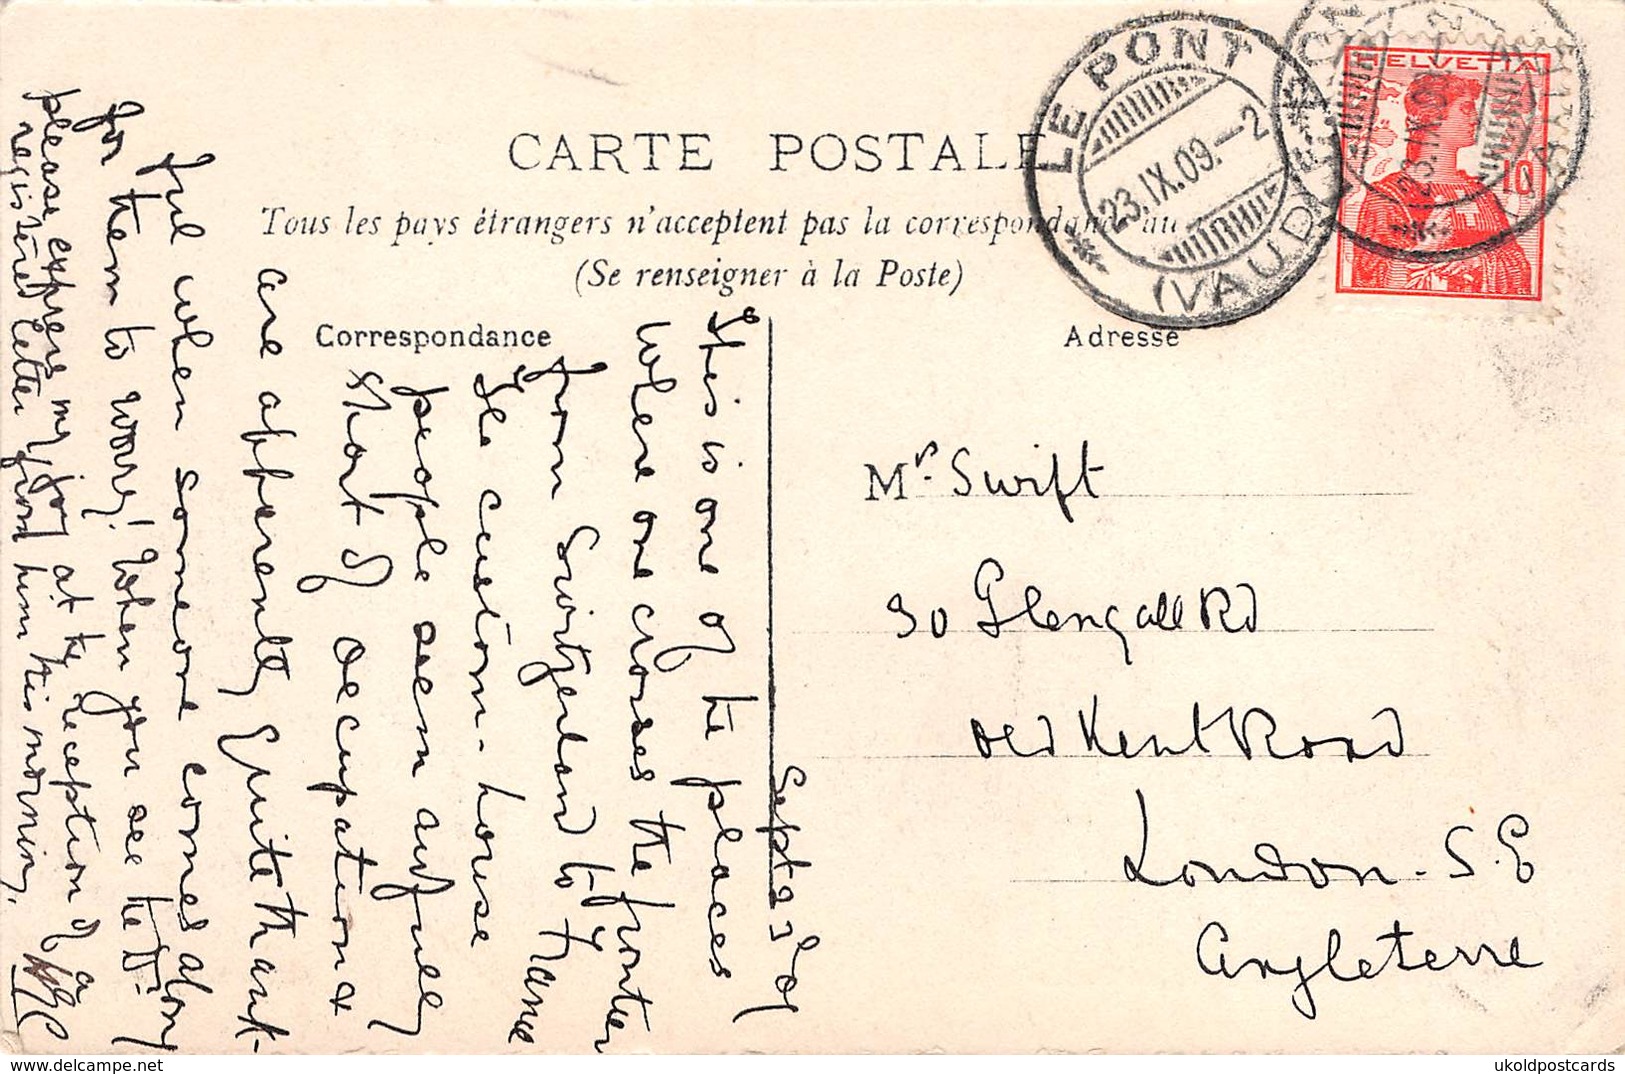 CARTE POSTALE
Tous les pays étrangers n'acceptent pas la correspondance au
(Se renseigner à la Poste)
Correspondance
Adresse
LE PONT
(VAUD)
23.IX.09.-2
HELVETIA
10
Mrs Swift
30 Glengall Rd
Old Kent Road
London. S.E
Angleterre
Sept 23/09
This is one of the places
where one crosses the frontier
from Switzerland to France
The custom-house
people seem awfully
short of occupation &
are apparently quite thank-
ful when someone comes along
for them to worry! When you see the
please express my joy at the reception of a
registered letter from him this morning.
ukoldpostcards